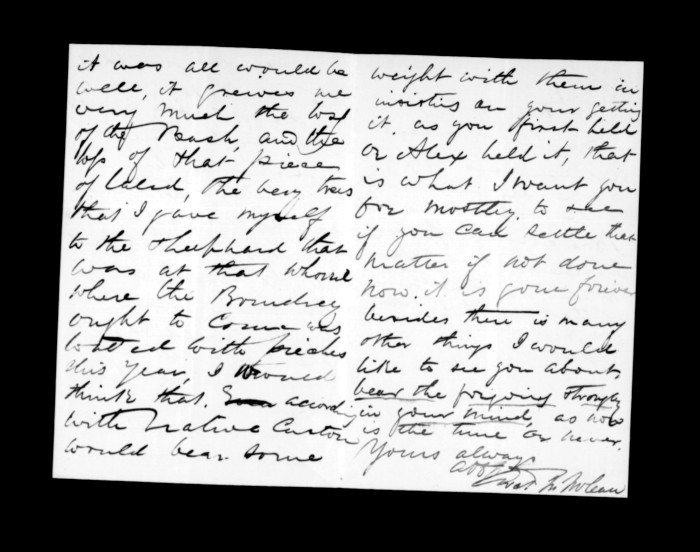 it was all would be
well, it greives me
very much the loss
of the Bush, and the
loss of that piece
of land, the very trees
that I gave myself
to the Shephard that
was at that whome
where the Boundrey
ought to come was
loaded with pieches
this year, I would
think that, according
with Native Custom
would bear some
weight with them in
insisting on your getting
it, as you first held
or Alex held it, that
is what I want you
for mostley, to see
if you can settle that
matter if not done
now, it is gone forever
besides there is many
other things I would
like to see you about,
bear the forgoing strongly
in your mind, as now
is the time or never.
Yours always
McLean